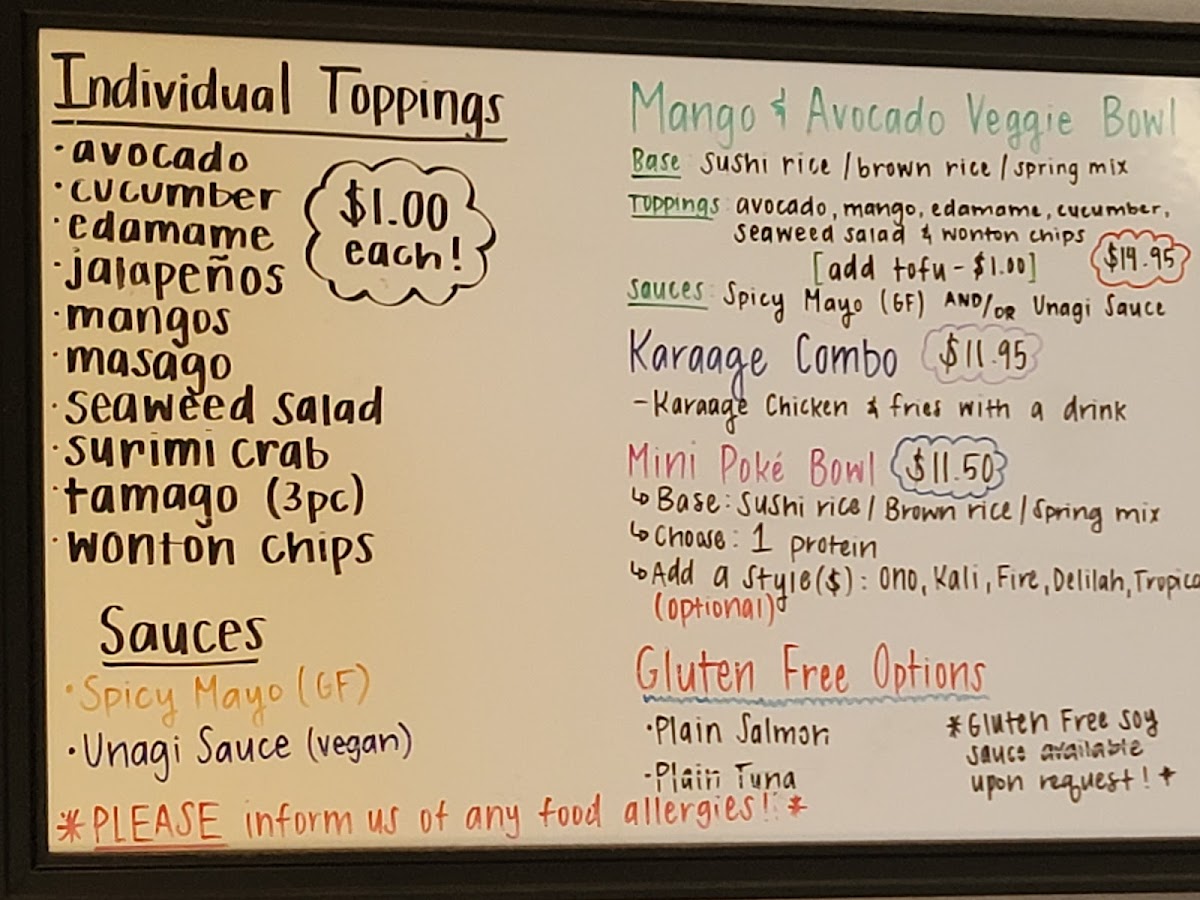 Individual Toppings
· avocado
· cucumber
· edamame
· jalapeños
· mangos
· masago
· seaweed salad
· surimi crab
· tamago (3pc)
· wonton chips
$1.00
each!
Sauces
· Spicy Mayo (GF)
· Unagi Sauce (vegan)
* PLEASE inform us of any food allergies!! *
Mango & Avocado Veggie Bowl
Base: Sushi rice / brown rice / spring mix
Toppings: avocado, mango, edamame, cucumber,
seaweed salad & wonton chips
[add tofu - $1.00]
$14.95
Sauces: Spicy Mayo (GF) AND/OR Unagi Sauce
Karaage Combo $11.95
- Karaage Chicken & fries with a drink
Mini Poké Bowl $11.50
↳ Base: Sushi rice / Brown rice / Spring mix
↳ Choose: 1 protein
↳ Add a Style($): Ono, Kali, Fire, Delilah, Tropica
(optional)
Gluten Free Options
· Plain Salmon
· Plain Tuna
* Gluten Free soy
sauce available
upon request! *